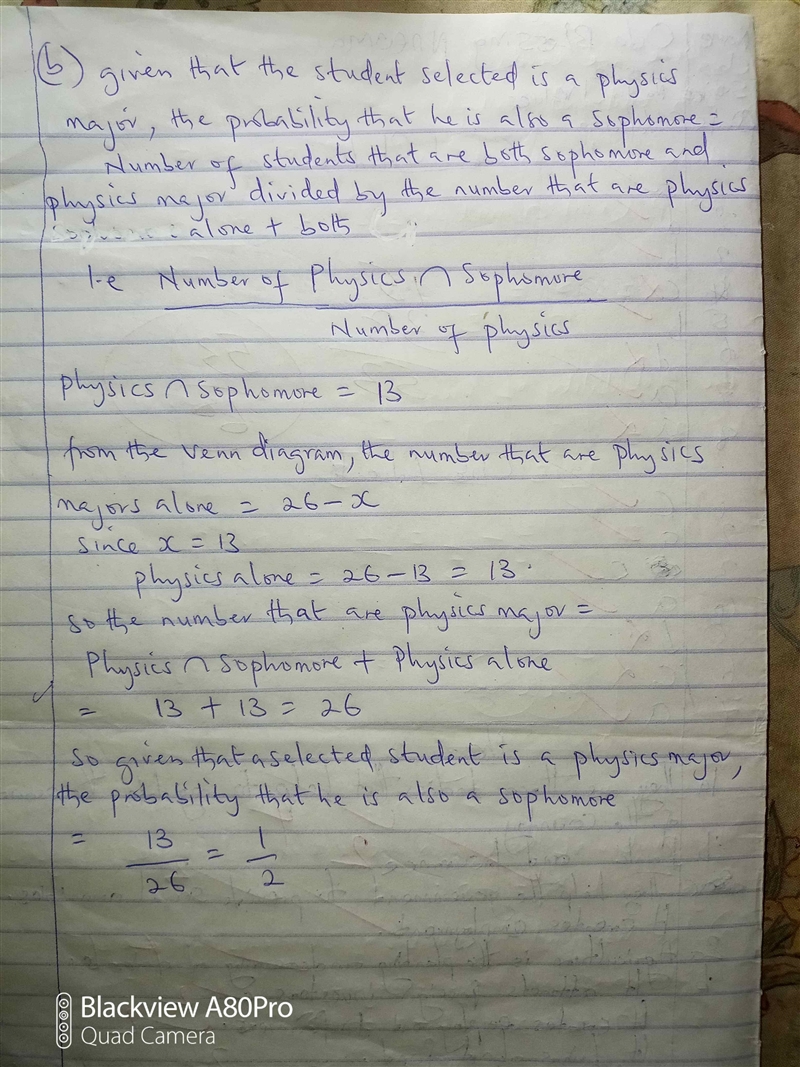 (b) given that the student selected is a physics
major, the probability that he is also a sophomore =
Number of students that are both sophomore and
physics major divided by the number that are physics
alone + both
i.e Number of Physics ∩ Sophomore
Number of physics
Physics ∩ Sophomore = 13
from the venn diagram, the number that are physics
majors alone = 26 - x
since x = 13
physics alone = 26 - 13 = 13.
so the number that are physics major =
Physics ∩ Sophomore + Physics alone
= 13 + 13 = 26
so given that a selected student is a physics major,
the probability that he is also a sophomore
= 13/26 = 1/2
Blackview A80Pro
Quad Camera